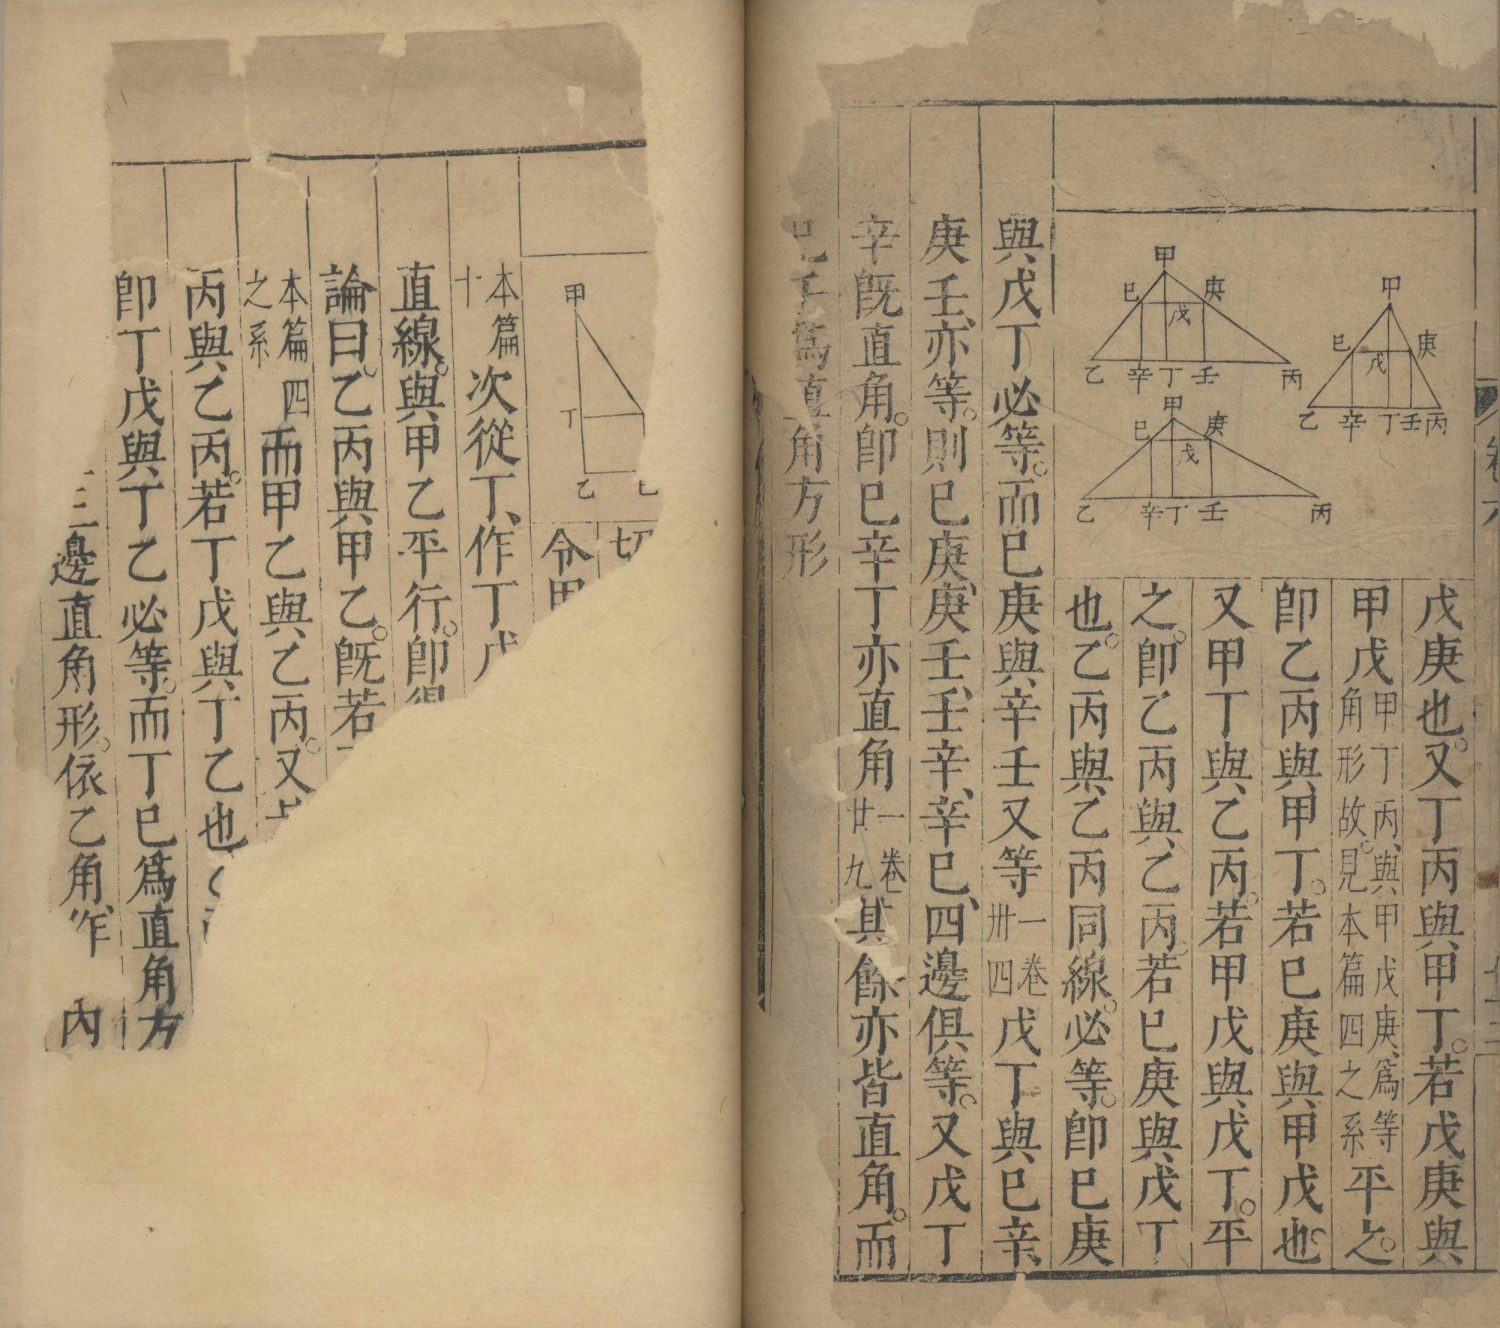 戊庚也。又丁丙與甲丁。若戊庚與
甲戊甲丁丙、與甲戊庚、爲等角形故。見本篇四之系平之。
卽乙丙與甲丁。若巳庚與甲戊也。
又甲丁與乙丙。若甲戊與戊丁。平
之。卽乙丙與乙丙。若巳庚與戊丁
也。乙丙與乙丙同線。必等。卽巳庚
與戊丁必等。而巳庚與辛壬又等一卷卅四戊丁與巳辛
庚壬、亦等。則巳庚、庚壬、壬辛、辛巳、四邊俱等。又戊丁
辛旣直角。卽巳辛丁亦直角一卷廿九其餘亦皆直角。而
爲直角方形
甲
巳
庚
戊
乙
辛
丁
壬
丙
甲
巳
庚
戊
乙
辛
丁
壬
丙
甲
巳
庚
戊
乙
辛
丁
壬
丙
卷六
甲
丁
乙
切
令甲
本篇十次從丁、作丁戊
直線。與甲乙平行。卽得
論曰。乙丙與甲乙。旣若
本篇四之系而甲乙與乙丙。又
丙與乙丙。若丁戊與丁乙也
卽丁戊與丁乙必等。而丁巳爲直角方
三邊直角形。依乙角、作 內